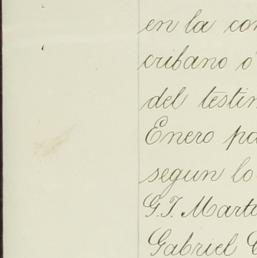 en la con
cribano ó
del testin
Enero pa
segun lo
G. T. Marti
Gabriel C